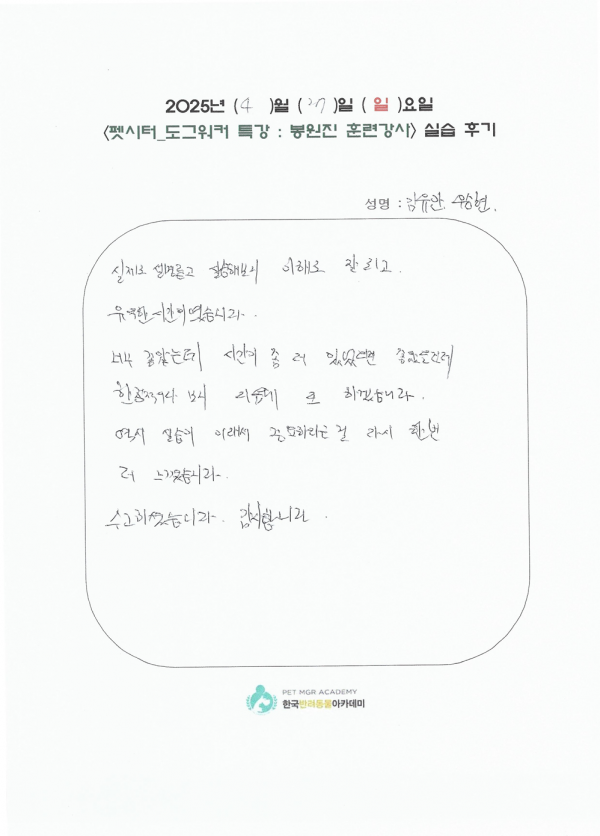 2025년 (4)월 (27)일 (일)요일
<펫시터_도그워커 특강 : 봉원진 훈련강사> 실습 후기
성명 : 김유안, 우승현.
실제로 실습해보니 이해도 잘 되고.
유익한 시간이였습니다.
너무 짧았는데 시간이 좀 더 있었으면 좋았을건데
하겠습니다.
역시 실습이 이래서 중요하다는 걸 다시 한번
더 느꼈습니다.
수고하셨습니다. 감사합니다.
PET MGR ACADEMY
한국반려동물아카데미